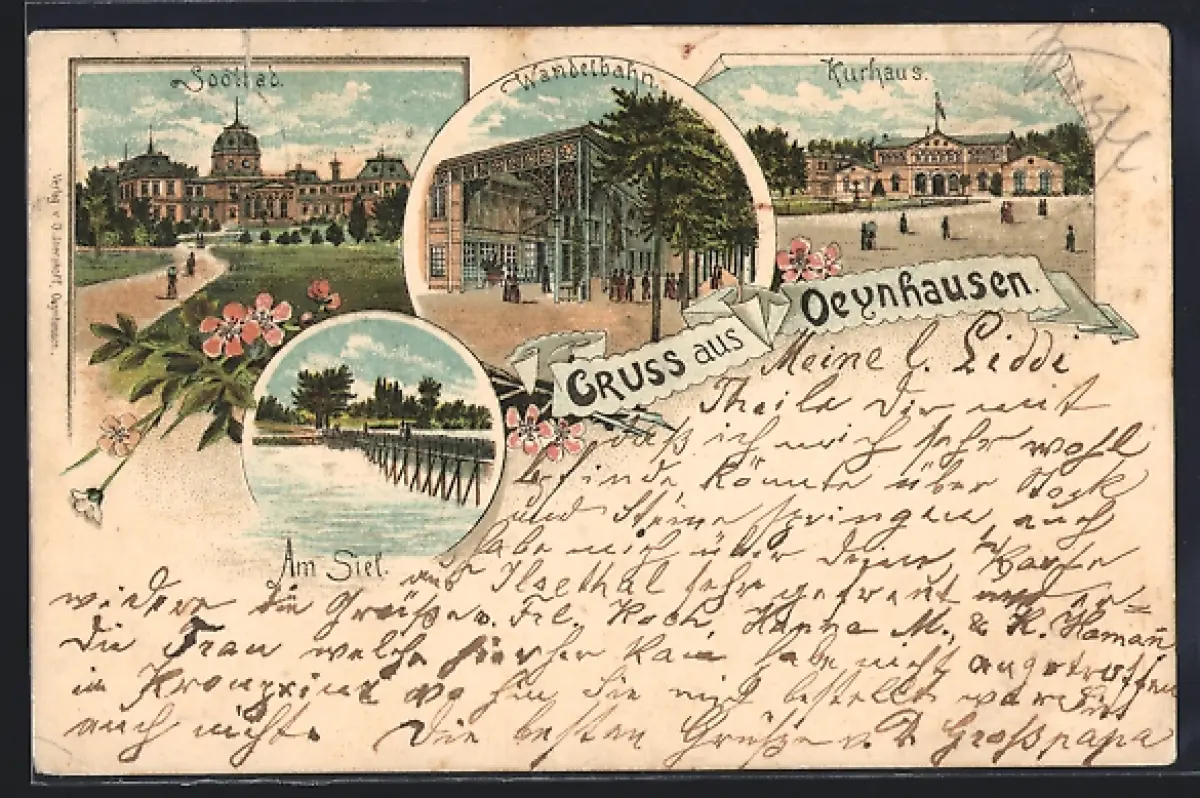 Soolbad.
Wandelbahn.
Kurhaus.
Verlag v. Oeynhausen.
GRUSS aus Oeynhausen.
Am Siel.
Meine l. Liddi
Theile Dir mit
daß ich mich sehr wohl
befinde könnte über Stock
und Steine springen, auch
habe mich über deine Karte
aus Ilsethal sehr gefreut und er=
widere die Grüße v. Frl. Koch, Hanna M., & K. Hamañ
die Frau welche hierher kam habe nicht angetroffen
im Kronprinz wo hin Sie mich bestellt war Sie
auch nicht. Die besten Grüße v. D. Grosspapa